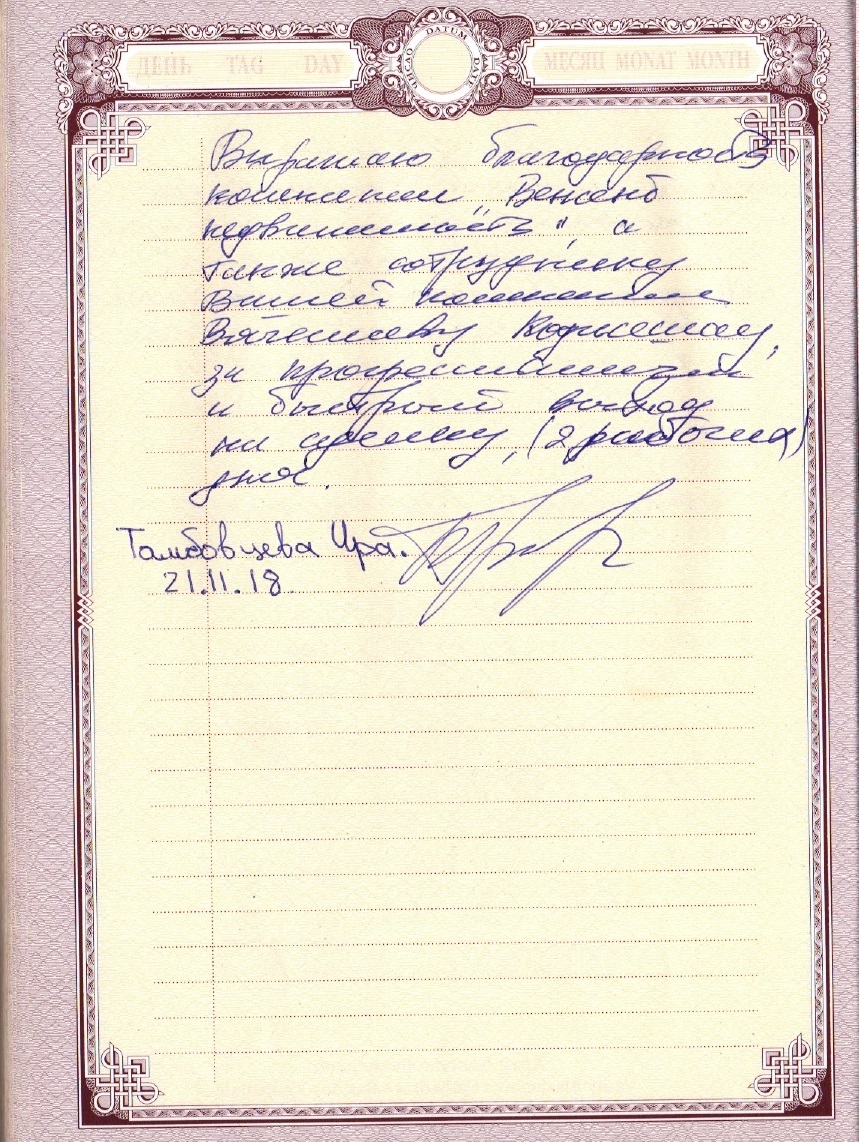 ДЕНЬ TAG DAY
ЧИСЛО DATUM DATE
МЕСЯЦ MONAT MONTH
Выражаю благодарность
компании „Венскб
недвижимость", а
также сотруднику
Вашей компании
Вячеславу,
за профессионализм
и быстрый выход
на сделку, (2 рабочих)
дня.
Тамбовцева Ира.
21.11.18